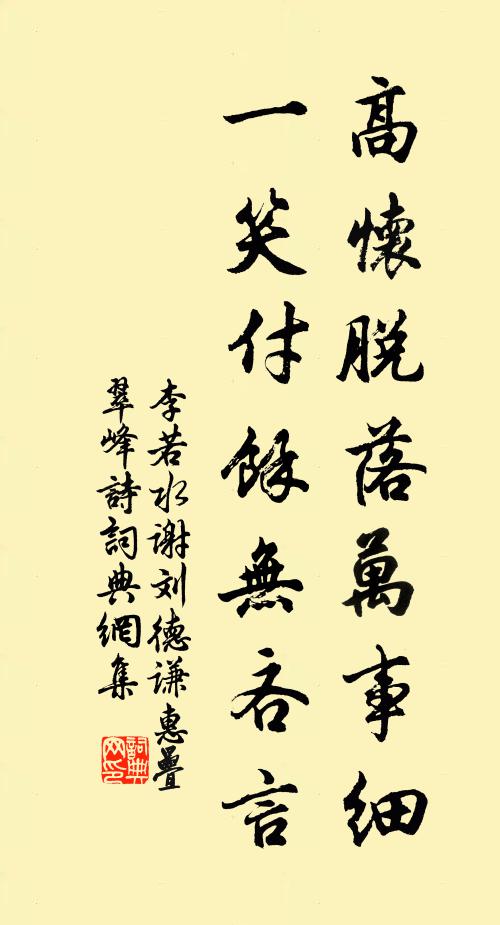 高懷脱落萬事細
一笑付餘無吝言
李若水谢刘德谦惠疊
翠峰詩詞典網集
詞典网印